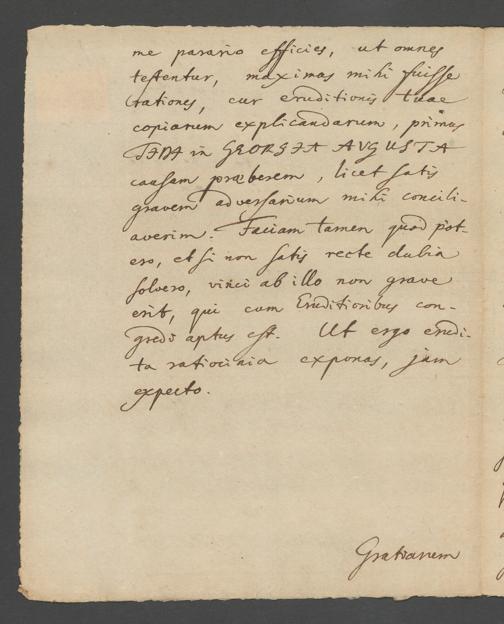 me parario efficies, ut omnes
testentur, maximas mihi fuisse
rationes, cur eruditionis tuae
copiarum explicandarum, primus
TIBI in GEORGIA AVGUSTA
causam præberem, licet satis
gravem adversarium mihi concili-
averim. Faciam tamen quod pot-
ero, etsi non satis recte dubia
solvero, vinci ab illo non grave
erit, qui cum Eruditioribus con-
gredi aptus est. Ut ergo erudi-
ta ratiocinia exponas, jam
expecto.
Gratiarum